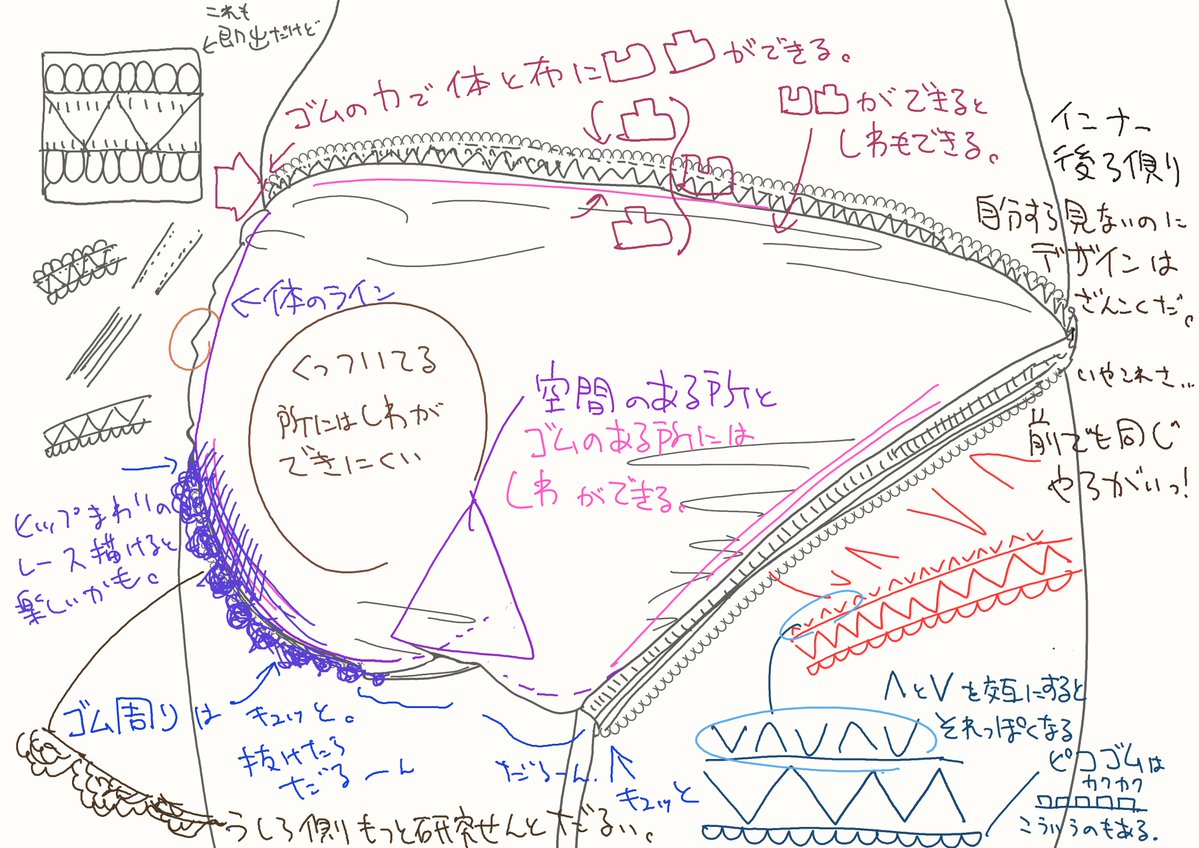 これも
←即出だけど
ゴムの力で体と布に凹凸ができる。
凹凸ができると
しわもできる。
インナー
後ろ側り
自分すら見ないのに
デザインは
ざんこくだ。
いやこれさ…
前でも同じ
やろがいっ!
←体のライン
くっついてる
所にはしわが
できにくい
空間のある所と
ゴムのある所には
しわができる。
ヒップまわりの
レース描けると
楽しいかも。
ゴム周りは キュッと。
抜けたら
だるーん
だるーん。
キュッと
ΛとVを交互にすると
それっぽくなる
ピコゴムは
カクカク
こういうのもある.
うしろ側りもっと研究せんとだるい。